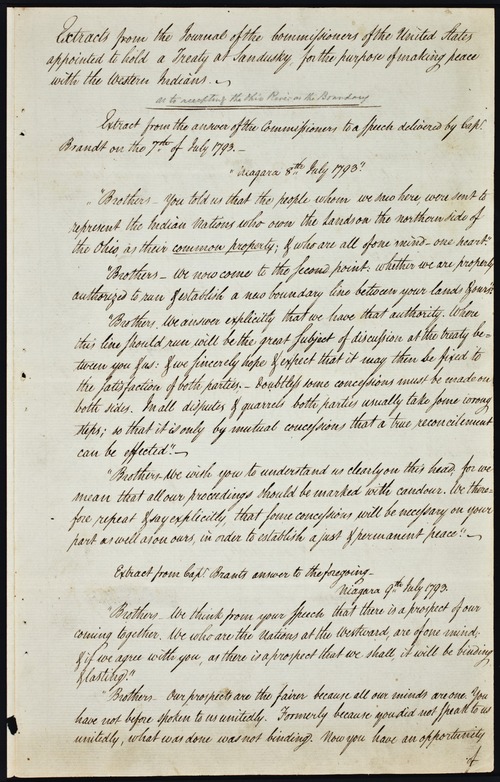 Extracts from the Journal of the Commissioners of the United States
appointed to hold a Treaty at Sandusky, for the purpose of making peace
with the Western Indians.
as to accepting the Ohio River as the Boundary
Extract from the answer of the Commissioners to a Speech delivered by Capt.
Brandt on the 7th of July 1793.—
"Niagara 8th July 1793."
"Brothers— You told us that the people whom we see here, were sent to
represent the Indian Nations who own the Lands on the northern side of
the Ohio, as their common property; & who are all of one mind— one heart."
"Brothers— We now come to the second point: whether we are properly
authorized to run & establish a new boundary line between your lands & ours."
"Brothers, We answer explicitly that we have that authority. Where
this line should run will be the great subject of discussion at the treaty be-
tween you & us: & we sincerely hope & expect that it may then be fixed to
the satisfaction of both parties.— Doubtless some concessions must be made on
both sides. In all disputes & quarrels both parties usually take some wrong
steps; so that it is only by mutual concessions that a true reconcilement
can be effected."—
"Brothers— We wish you to understand us clearly on this head, for we
mean that all our proceedings should be marked with candour. We there-
fore repeat & say explicitly, that some concessions will be necessary on your
part as well as on ours, in order to establish a just & permanent peace."—
Extract from Capt. Brants answer to the foregoing—
Niagara 9th July 1793.
"Brothers— We think from your Speech that there is a prospect of our
coming together. We who are the Nations at the Westward, are of one mind;
& if we agree with you, as there is a prospect that we shall, it will be binding
& lasting."
"Brothers— Our prospects are the fairer because all our minds are one. You
have not before spoken to us unitedly. Formerly because you did not speak to us
unitedly, what was done was not binding. Now you have an opportunity